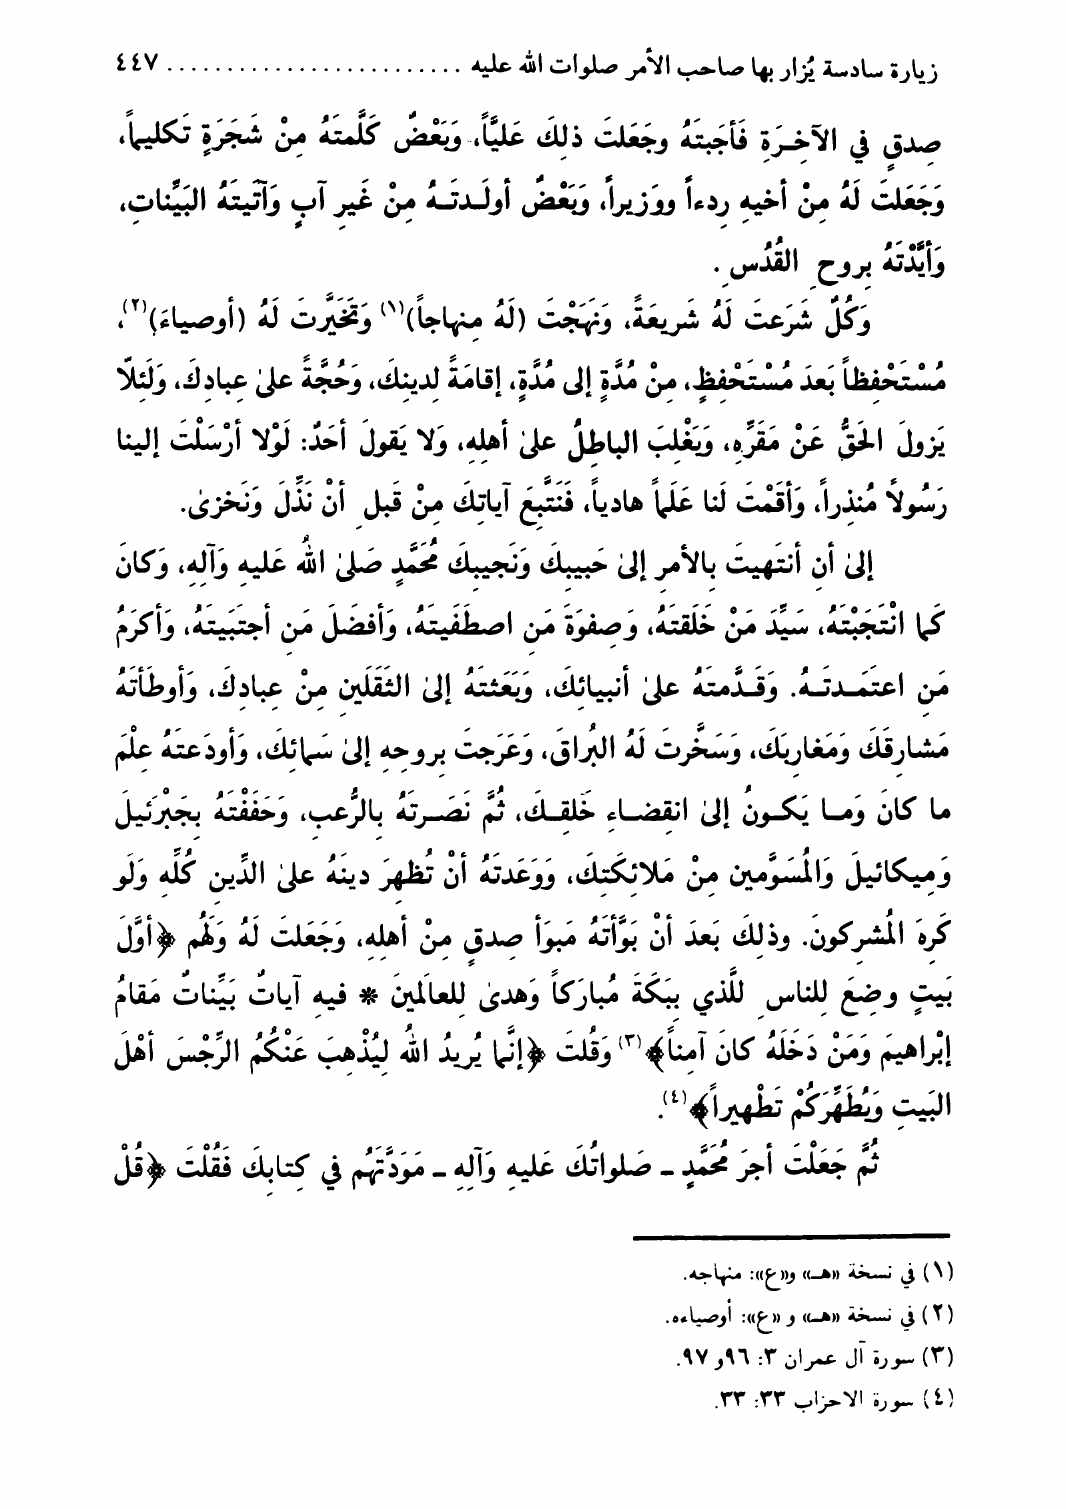 زيارة سادسة يُزار بها صاحب الأمر صلوات الله عليه ......................... ٤٤٧
صِدقٍ في الآخِرَةِ فَأجَبتَهُ وجَعَلتَ ذلِكَ عَليَّاً، وَبَعْضٌ كَلَّمتَهُ مِنْ شَجَرَةٍ تَكليماً،
وَجَعَلتَ لَهُ مِنْ أخيهِ رِدءاً ووَزيراً، وَبَعْضٌ أولَـدتَـهُ مِنْ غَيرِ آبٍ وَآتَيتَهُ البَيِّناتِ،
وَأيَّدْتَهُ بِروحِ القُدُسِ.
وَكُلٌّ شَرَعتَ لَهُ شَريعَةً، وَنَهَجْتَ (لَهُ مِنهاجاً)(١) وَتَخَيَّرتَ لَهُ (أوصِياءَ)(٢)،
مُسْتَحْفِظاً بَعدَ مُسْتَحْفِظٍ، مِنْ مُدَّةٍ إلى مُدَّةٍ، إقامَةً لِدينِكَ، وَحُجَّةً علىٰ عِبادِكَ، وَلَئِلّا
يَزولَ الحَقُّ عَنْ مَقَرِّهِ، وَيَغْلِبَ الباطِلُ علىٰ أهلِهِ، وَلا يَقولَ أحَدٌ: لَوْلا أرْسَلْتَ إلينا
رَسُولاً مُنذِراً، وَأقَمْتَ لَنا عَلَماً هادِياً، فَنَتَّبِعَ آياتِكَ مِنْ قَبلِ أنْ نَذِّلَ وَنَخزىٰ.
إلىٰ أن أنتَهيتَ بِالأمرِ إلىٰ حَبيبِكَ وَنَجيبِكَ مُحَمَّدٍ صَلىٰ اللهُ عَليهِ وَآلِهِ، وَكانَ
كَما انْتَجَبْتَهُ، سَيِّدَ مَنْ خَلَقتَهُ، وَصِفوَةَ مَنِ اصطَفَيتَهُ، وَأفضَلَ مَنِ أجتَبَيتَهُ، وَأكرَمُ
مَنِ اعتَمَـدتَـهُ. وَقَـدَّمتَهُ علىٰ أنبيائِكَ، وَبَعَثتَهُ إلىٰ الثَقَلَينِ مِنْ عِبادِكَ، وَأوطَأتَهُ
مَشارِقَكَ وَمَغارِبَكَ، وَسَخَّرتَ لَهُ البُراقَ، وَعَرَجتَ بِروحِهِ إلىٰ سَمائِكَ، وَأودَعتَهُ عِلْمَ
ما كانَ وَمـا يَكـونُ إلىٰ انقِضـاءِ خَلقِـكَ، ثُمَّ نَصَـرتَهُ بِالرُّعبِ، وَحَفَفْتَهُ بِجَبْرَئيلَ
وَميكائيلَ وَالمُسَوَّمينَ مِنْ مَلائِكَتِكَ، وَوَعَدتَهُ أنْ تُظهِرَ دينَهُ علىٰ الدِّينِ كُلِّهِ وَلَو
كَرِهَ المُشرِكونَ. وذلِكَ بَعدَ أنْ بَوَّأتَهُ مَبوَأ صِدقٍ مِنْ أهلِهِ، وَجَعَلتَ لَهُ وَلَهُم ﴿أوَّلَ
بَيتٍ وضِعَ لِلناسِ للَّذي بِبَكَةَ مُبارَكاً وَهدىٰ لِلعالَمينَ * فيهِ آياتٌ بَيِّناتٌ مَقامُ
إبْراهيمَ وَمَنْ دَخَلَهُ كانَ آمِناً﴾(٣) وَقُلتَ ﴿إنَّما يُريدُ اللهُ لِيُذْهِبَ عَنْكُمُ الرِّجْسَ أهْلَ
البَيتِ وَيُطَهِّرَكُمْ تَطْهيراً﴾(٤).
ثُمَّ جَعَلْتَ أجرَ مُحَمَّدٍ ـ صَلواتُكَ عَليهِ وَآلِهِ ـ مَوَدَّتَهُم في كِتابِكَ فَقُلْتَ ﴿قُلْ
(١) في نسخة «هـ» و«ع»: منهاجه.
(٢) في نسخة «هـ» و «ع»: أوصياءه.
(٣) سورة آل عمران ٣: ٩٦و ٩٧.
(٤) سورة الاحزاب ٣٣: ٣٣.